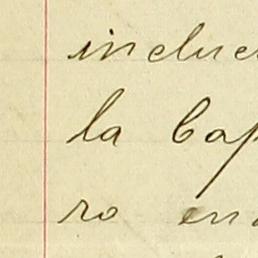 inclu
la Cap
ro en